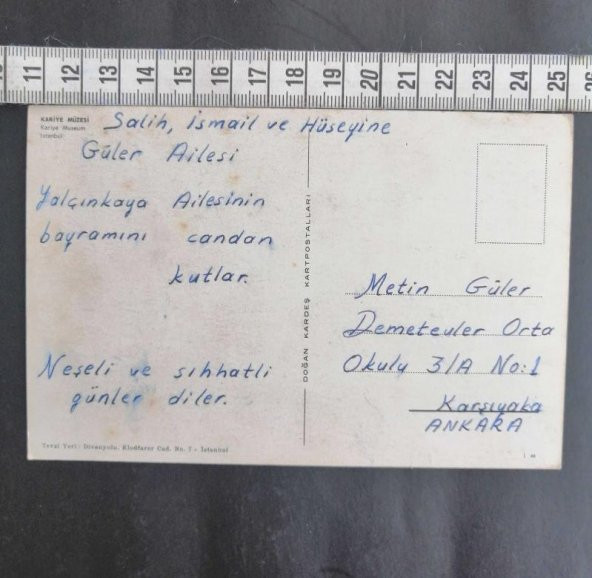 11 12 13 14 15 16 17 18 19 20 21 22 23 24 25 26
KARİYE MÜZESİ
Kariye Museum
İstanbul
Salih, İsmail ve Hüseyine
Güler Ailesi
Yalçınkaya Ailesinin
bayramını candan
kutlar.
Neşeli ve sıhhatli
günler diler.
Tevzi Yeri: Divanyolu, Klodfarer Cad. No. 7 - İstanbul
DOĞAN KARDEŞ KARTPOSTALLARI
Metin Güler
Demetevler Orta
Okulu 3/A No:1
Karşıyaka
ANKARA